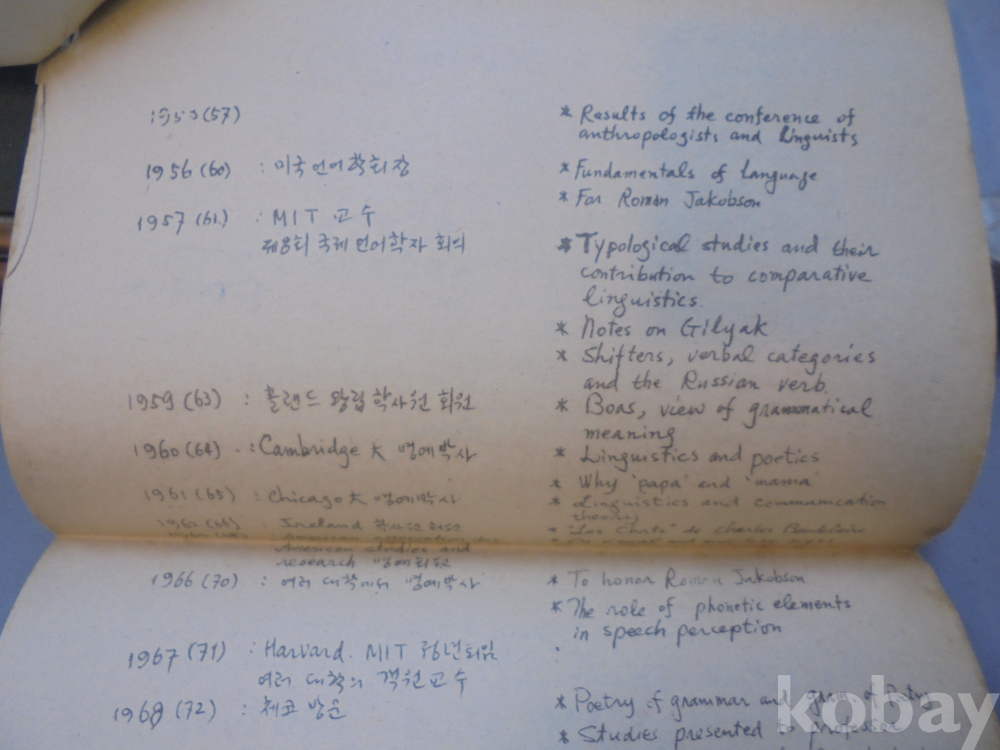 1953 (57)
* Results of the conference of
anthropologists and linguists
1956 (60) : 미국 언어학회장
* Fundamentals of language
* For Roman Jakobson
1957 (61) : MIT 교수
제8회 국제 언어학자 회의
* Typological studies and their
contribution to comparative
linguistics.
* Notes on Gilyak
* Shifters, verbal categories
and the Russian verb.
1959 (63) : 홀랜드 왕립학사원 회원
* Boas, view of grammatical
meaning
1960 (64) : Cambridge 大 명예박사
* Linguistics and poetics
* Why 'papa' and 'mama'
1961 (65) : Chicago 大 명예박사
* Linguistics and communication
theory
Ireland 학사원 회원
* "Les Chats" de Charles Baudelaire
American studies and
research 명예회원
1966 (70) : 여러 대학에서 명예박사
* To honor Roman Jakobson
* The role of phonetic elements
in speech perception
1967 (71) : Harvard. MIT 정년퇴임
여러 대학의 객원교수
1968 (72) : 체코 방문
* Poetry of grammar and gram of Poetry
* Studies presented to professor
kobay